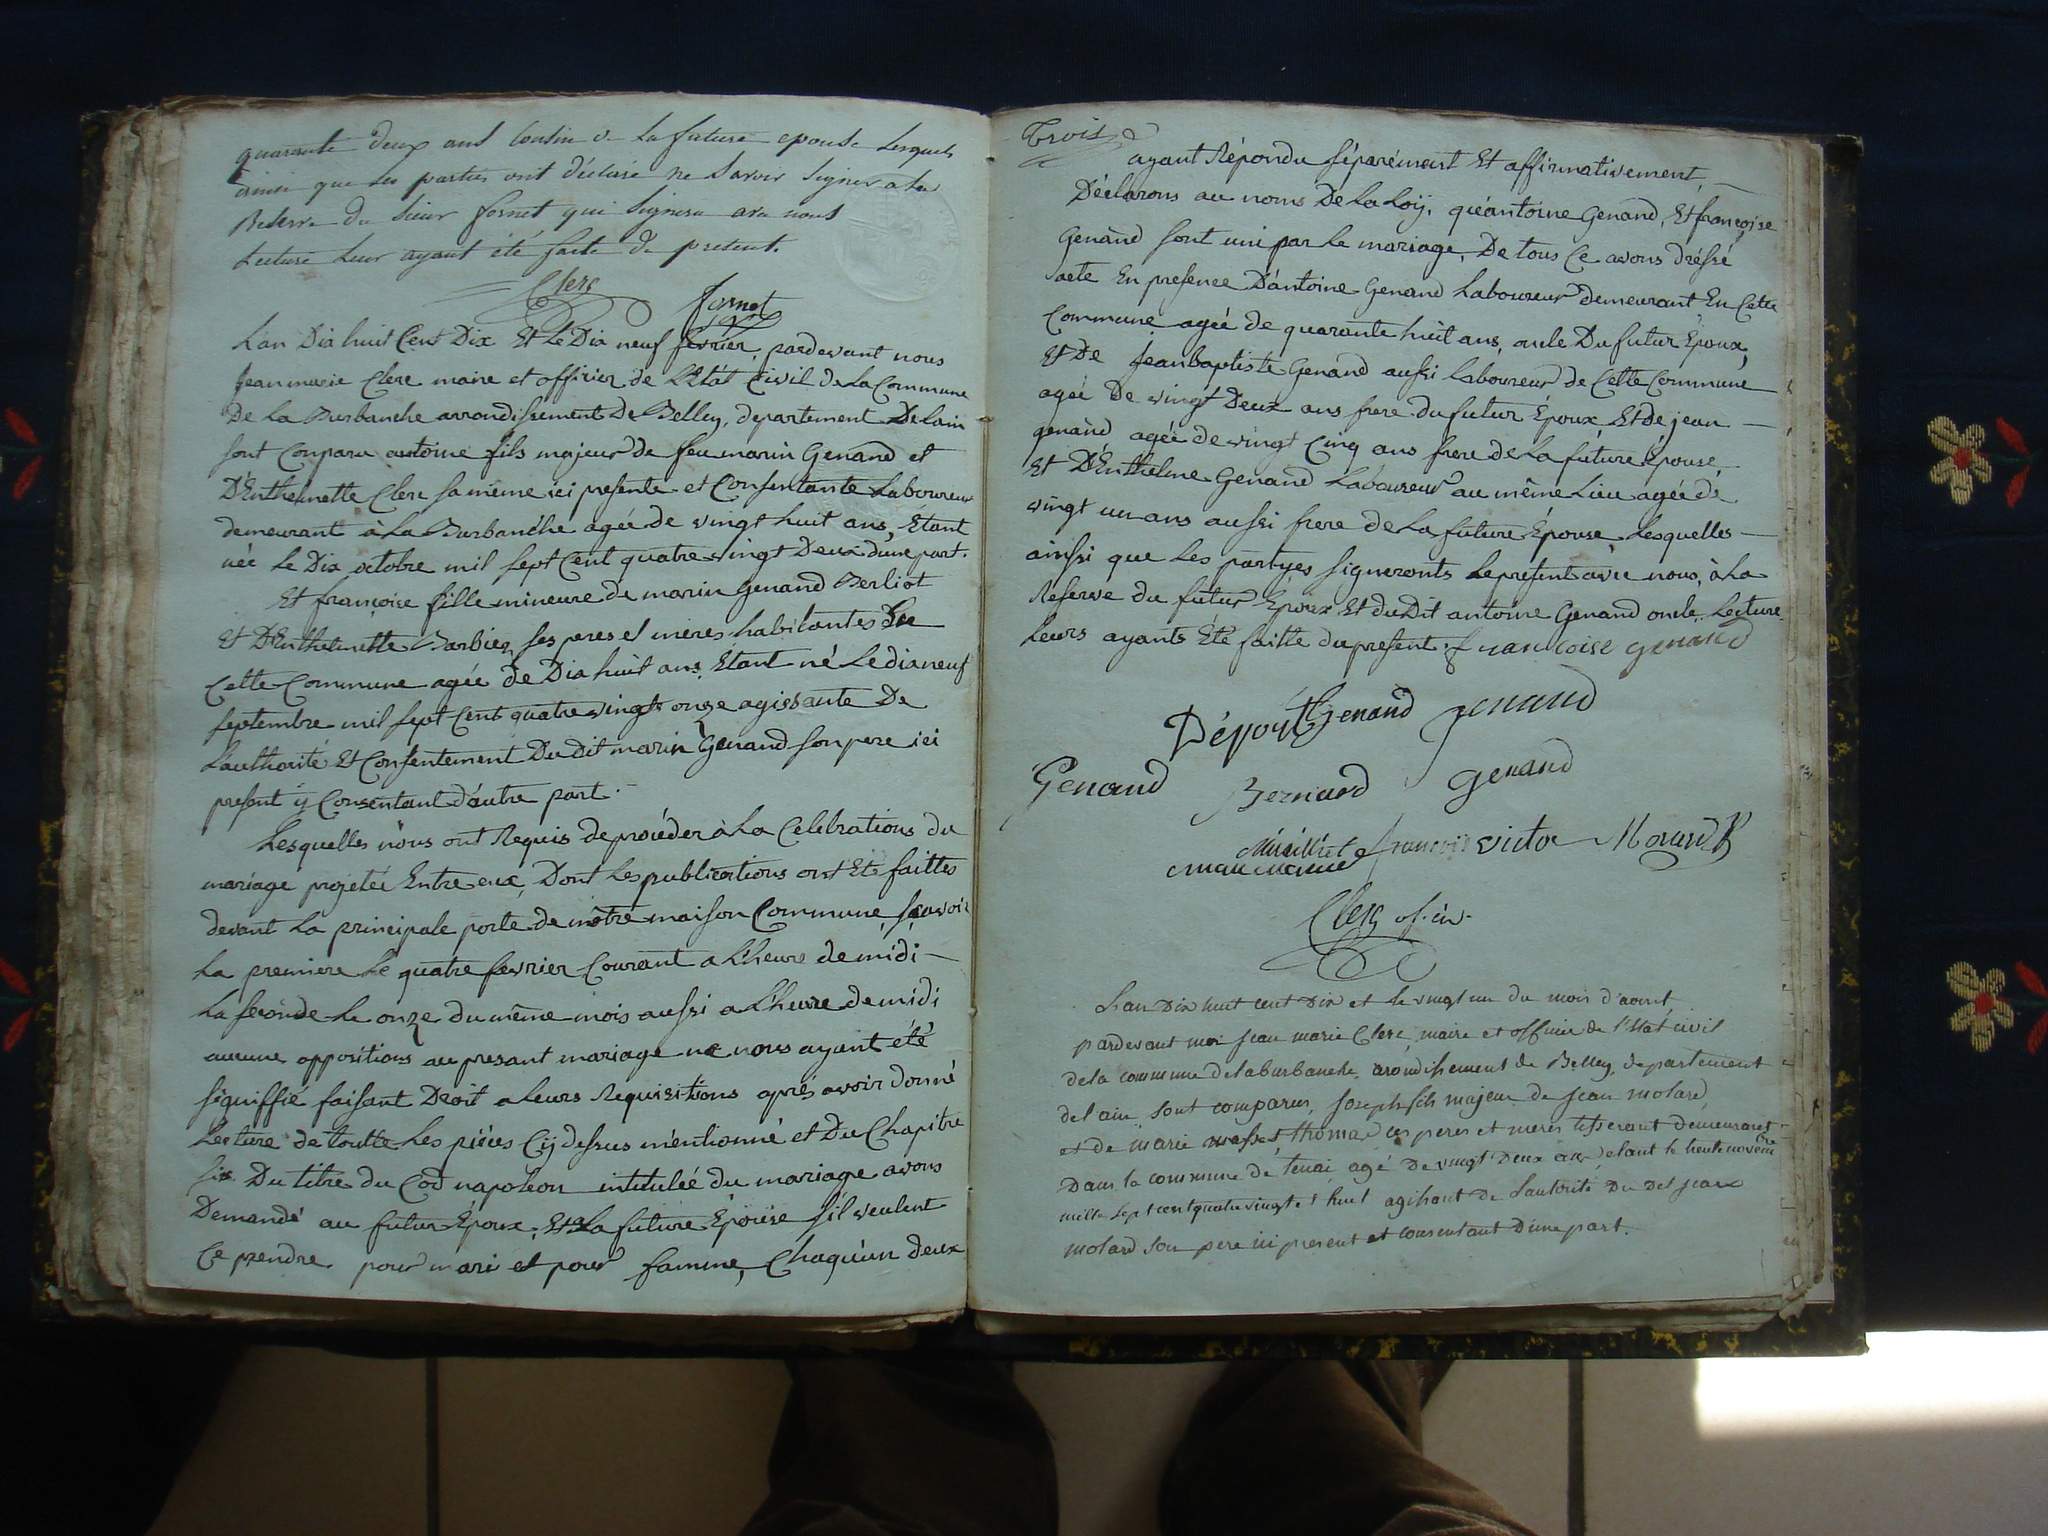 quarante deux ans cousin de la future epouse lesquels
ainsi que les parties ont déclaré ne savoir signer a la
Reserve du sieur fornet qui signera avec nous
Lecture leur ayant été faite du present.
Clerc fornet
L'an Dix huit Cent Dix Et Le Dix neuf février, pardevant nous
Jean marie Clerc maire et officier de L'Etát Civil de La Commune
De La Burbanche arrondissement De Belley, departement De Lain
sont Conparu antoine fils majeur de feu marin Genand et
D'Enthelmette Clerc sa mème ici presente et Consentante Laboureur
demeurant à La Burbanche agée de vingt huit ans, Etant
née Le Dix octobre mil sept Cent quatre vingt Deux d'une part.
Et françoise fille mineure de marin Genand Berliot
Et D'Enthelmette Barbier ses peres et mères habitantes De
Cette Commune agée de Dix huit ans, Etant né Le dix neuf
septembre mil sept Cent quatre vingt onze agissante De
Lauthorité Et Consentement Du dit marin Genand son pere ici
present ÿ Consentant d'autre part.
Lesquelles nous ont Requis de procéder à La Celebrations du
mariage projetée Entre eux, Dont Les publications ont Eté faittes
devant La principale porte de nôtre maison Commune, sçavoir
La premiere Le quatre fevrier Courant a L'heure de midi
La seconde Le onze du même mois aussi a L'heure de midi
aucune oppositions au presant mariage ne nous ayant été
signiffié faisant Droit a Leurs Requisitions aprés avoir donné
Lecture de toutte Les piéces Cÿ dessus méntionné et Du Chapitre
six Du titre du Cod napoleon intitulée du mariage avons
Demandé au futur Époux, Et a La future Épouse s'il veulent
Ce prendre pour mari et pour famme, Chaqu'un deux
Trois
ayant Répondu séparément Et affirmativement,
Déclarons au noms De La Loÿ, qu'antoine Genand, Et françoise
Genand sont uni par Le mariage, De tous Ce avons dréssé
acte En presence D'antoine Genand Laboureur demeurant En Cette
Commune agée de quarante huit ans, oncle Du futur Époux,
Et De Jean baptiste Genand aussi Laboureur de Cette Commune
agée De vingt Deux ans frere du futur Époux Et de jean
genand agée de vingt Cinq ans frere de La future Épouse,
Et D'Enthelme Genand Laboureur au même Lieu agée de
vingt un ans aussi frere de La future Épouse, Lesquelles
ainssi que Les partyes signeronts Le present avec nous, à La
Reserve du futur Époux Et du Dit antoine Genand oncle Lecture
Leurs ayants Été faitte du present. francoise genand
Genand genand
Genand Bernard genand
francois victor Morard
Clerc of. civ.
L'an Dix huit cent Dix et le vingt un du mois d'aoust
pardevant moi jean marie Clerc, maire et officier de l'Etat civil
de la commune de la burbanche, arondissement de Belley, departement
del ain sont comparus, joseph fils majeur de jean molard
et de marie thomas ces peres et meres tisserant demeurant
Dans la commune de tenai agé De vingt Deux ans etant le trente novembre
mille sept cent quatre vingt et huit agissant de Lautorité Du Dit jean
molard son pere ici present et consentant D'une part.